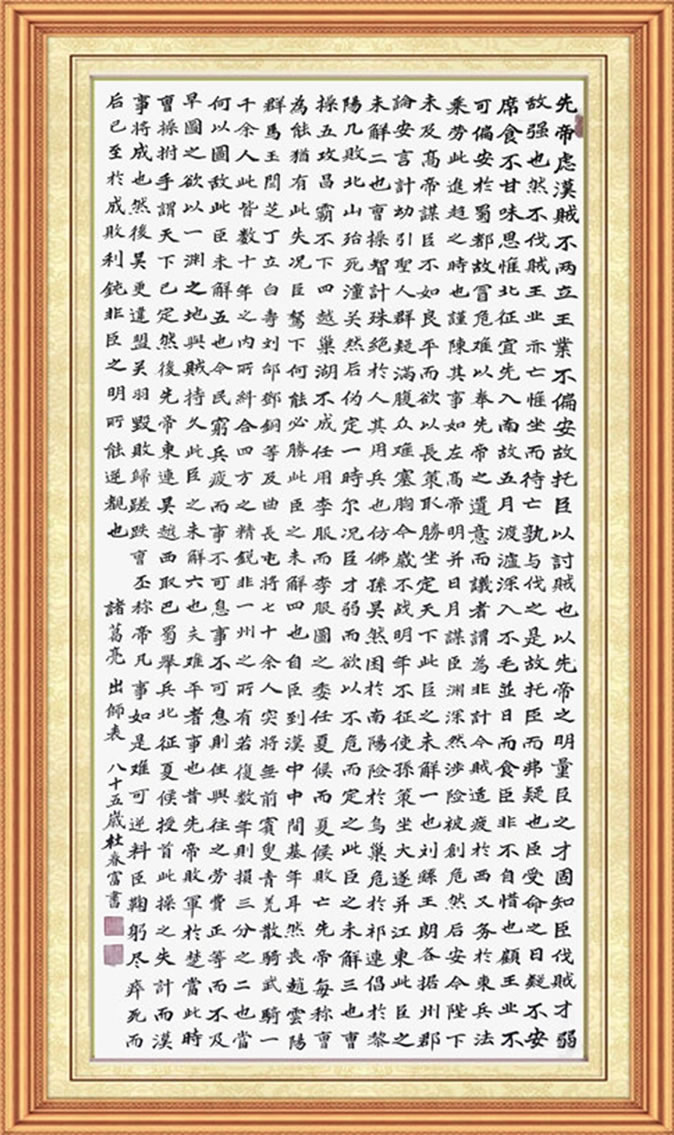 先帝虑漢賊不两立王業不偏安故托臣以討賊也以先帝之明量臣之才固知臣伐賊才弱
故强也然不伐賊王业亦亡惟坐而待亡孰与伐之是故托臣而弗疑也臣受命之日寝不安
席食不甘味思惟北征宜先入南故五月渡瀘深入不毛並日而食臣非不自惜也顧王业不
可偏安於蜀都故冒危难以奉先帝之遺意而議者謂為非計今賊适疲於西又务於東兵法
乘劳此進趋之時也謹陳其事如左高帝明并日月謀臣渊深然涉险被創危然后安今陛下
未及高帝謀臣不如良平而欲以長策取勝坐定天下此臣之未解一也刘繇王朗各据州郡
論安言計动引聖人群疑滿腹众难塞胸今歲不战明年不征使孫策坐大遂并江東此臣之
未解二也曹操智計殊絕於人其用兵也仿佛孫吴然困於南陽险於乌巢危於祁連偪於黎
陽几败北山殆死潼关然后伪定一時尔况臣才弱而欲以不危而定之此臣之未解三也曹
操五攻昌霸不下四越巢湖不成任用李服而李服圖之委任夏候而夏候敗亡先帝每称曹
為能猶有此失况臣駑下何能必勝此臣之未解四也自臣到漢中中間朞年耳然丧趙雲陽
群馬玉閻芝丁立白寿刘郃鄧銅等及曲長屯將七十余人突將無前賓叟青羌散騎武騎一
千余人此皆数十年之内所糾合四方之精鋭非一州之所有若復数年則損三分之二也當
何以圖敌此臣未解五也今民窮兵疲而事不可息事不可息則住與往之劳費正等而不及
早圖之欲以一渊之地與賊持久此臣之未解六也夫难平者事也昔先帝敗軍於楚當此時
曹操拊手謂天下已定然後先帝東連吴越西取巴蜀舉兵北征夏候授首此操之失計而漢
事將成也然後吴更違盟关羽毀敗歸蹉跌曹丕称帝凡事如是难可逆料臣鞠躬尽瘁死而
后已至於成敗利鈍非臣之明所能逆覩也 諸葛亮 出師表 八十五歲杜春富書